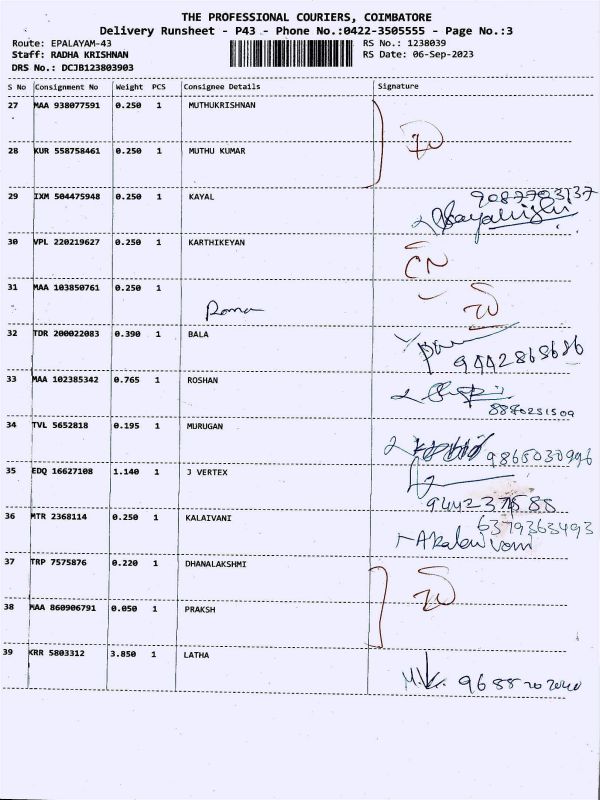 THE PROFESSIONAL COURIERS, COIMBATORE
Delivery Runsheet - P43 - Phone No.:0422-3505555 - Page No.:3
Route: EPALAYAM-43 RS No.: 1238039
Staff: RADHA KRISHNAN RS Date: 06-Sep-2023
DRS No.: DCJB123803903
S No Consignment No Weight PCS Consignee Details Signature
27 MAA 938077591 0.250 1 MUTHUKRISHNAN
28 KUR 558758461 0.250 1 MUTHU KUMAR
29 IXM 504475948 0.250 1 KAYAL
30 VPL 220219627 0.250 1 KARTHIKEYAN
31 MAA 103850761 0.250 1
32 TDR 200022083 0.390 1 BALA
9442863686
33 MAA 102385342 0.765 1 ROSHAN
34 TVL 5652818 0.195 1 MURUGAN
9865030996
35 EDQ 16627108 1.140 1 J VERTEX
36 MTR 2368114 0.250 1 KALAIVANI
6379363493
37 TRP 7575876 0.220 1 DHANALAKSHMI
38 MAA 860906791 0.050 1 PRAKSH
39 KRR 5803312 3.850 1 LATHA